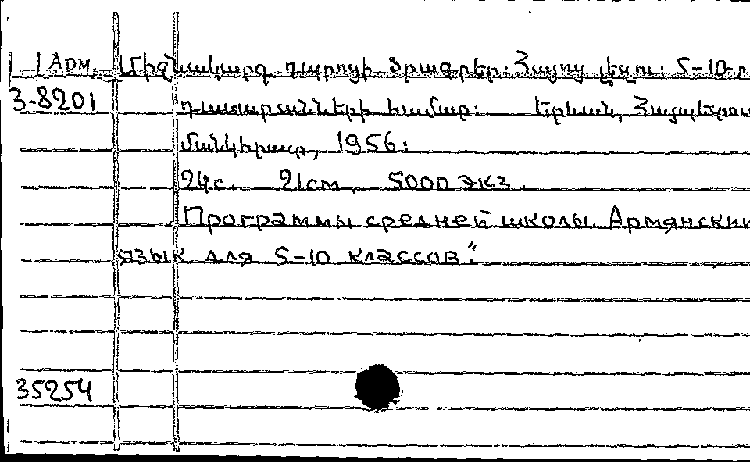 Арм. Միջնակարգ դպրոցի ծրագրեր: Հայոց լեզու: 5-10-ր
3-8201 դասարանների համար: Երևան, Հայպետու
մանկհրատ, 1956:
24с. 21см, 5000 экз.
Программы средней школы. Армянский
язык для 5-10 классов"
35254